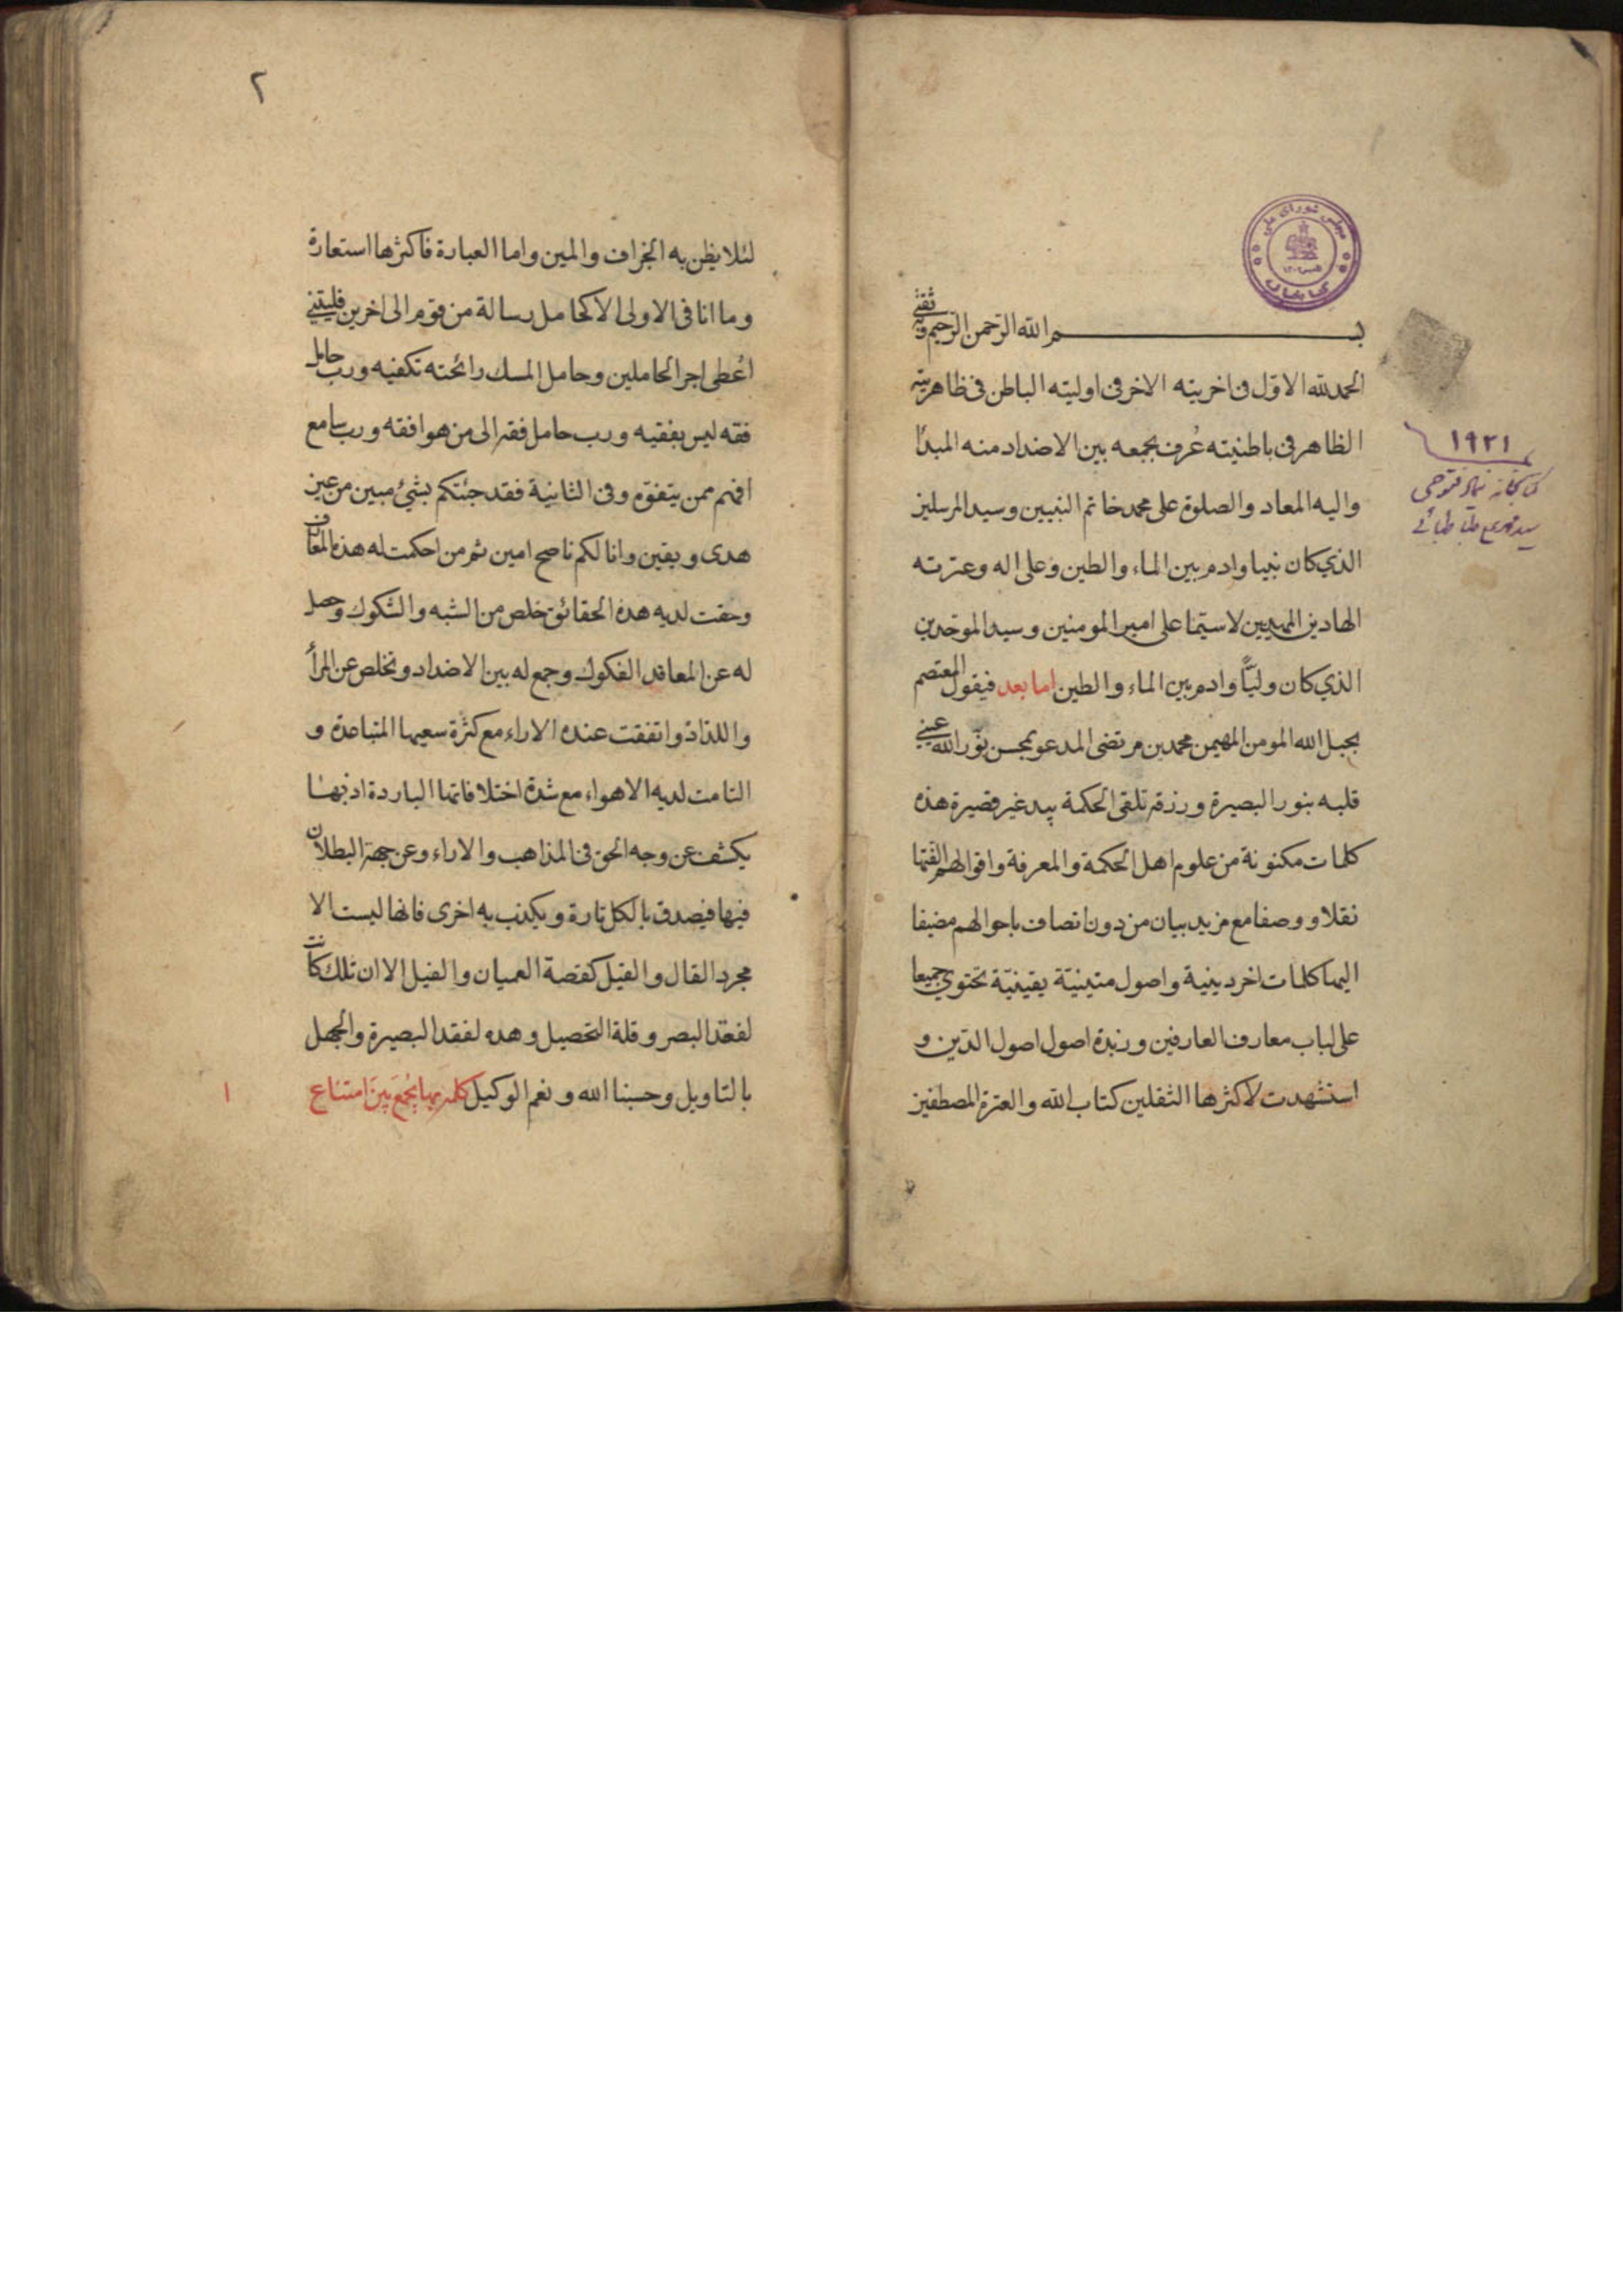 بسم الله الرحمن الرحيم وبه ثقتي
الحمد لله الاوّل فى اخريته الاخر فى اوليته الباطن فى ظاهريته
الظاهر فى باطنيته عُرف بجمعه بين الاضداد منه المبدأ
واليه المعاد والصلوة على محمد خاتم النبيين وسيد المرسلين
الذي كان نبيا وادم بين الماء والطين وعلى اله وعترته
الهادين المهديين لاسيّما على امير المومنين وسيد الموحّدين
الذي كان وليّاً وادم بين الماء والطين اما بعد فيقول المعتصم
بحبل الله المومن المهيمن محمد بن مرتضى المدعو بمحسن نوّر الله عيني
قلبه بنور البصيرة ورزقه تلقى الحكمة بيد غير قصيرة هذه
كلمات مكنونة من علوم اهل الحكمة والمعرفة واقوالهم الفتها
نقلا ووصفا مع مزيد بيان من دون اتصاف باحوالهم مضيفا
اليها كلمات اخر دينية واصول متينيّة يقينيّة تحتوي جميعا
على لباب معارف العارفين وزبدة اصول اصول الدّين و
استشهدت لاكثرها الثقلين كتاب الله والعترة المصطفين
١٩٢١
سيد طباطبائي
مجلس شورای ملی
کتابخانه
٢
لئلا يظن به الجزاف والمين واما العبارة فاكثرها استعارة
وما انا فى الاولى الا كحامل رسالة من قوم الى اخرين فليتني
اُعطى اجر الحاملين وحامل المسك رائحته تكفيه ورب حامل
فقه ليس بفقيه ورب حامل فقه الى من هو افقه ورب سامع
افهم ممن يتفوّه وفى الثانية فقد جئتكم بشئ مبين من عين
هدى ويقين وانا لكم ناصح امين ثم من احكمت له هذه المعارف
وحقت لديه هذه الحقائق خلص من الشبه والشكوك وحصل
له عن المعاقد الفكوك وجمع له بين الاضداد وتخلص عن المرأ
واللداد واتفقت عنده الاراء مع كثرة سعيها المتباعدة و
التامت لديه الاهواء مع شدة اختلافاتها الباردة اذ بهـا
يكشف عن وجه الحق فى المذاهب والاراء وعن جهة البطلان
فيها فيصدق بالكل تارة ويكذب به اخرى فانها ليست الا
مجرد القال والقيل كقصة العميان والفيل الا ان تلك كانت
لفقد البصر وقلة التحصيل وهذه لفقد البصيرة والجهل
بالتاويل وحسبنا الله ونعم الوكيل كلمة بها يُجمَع بينَ امتناع
١